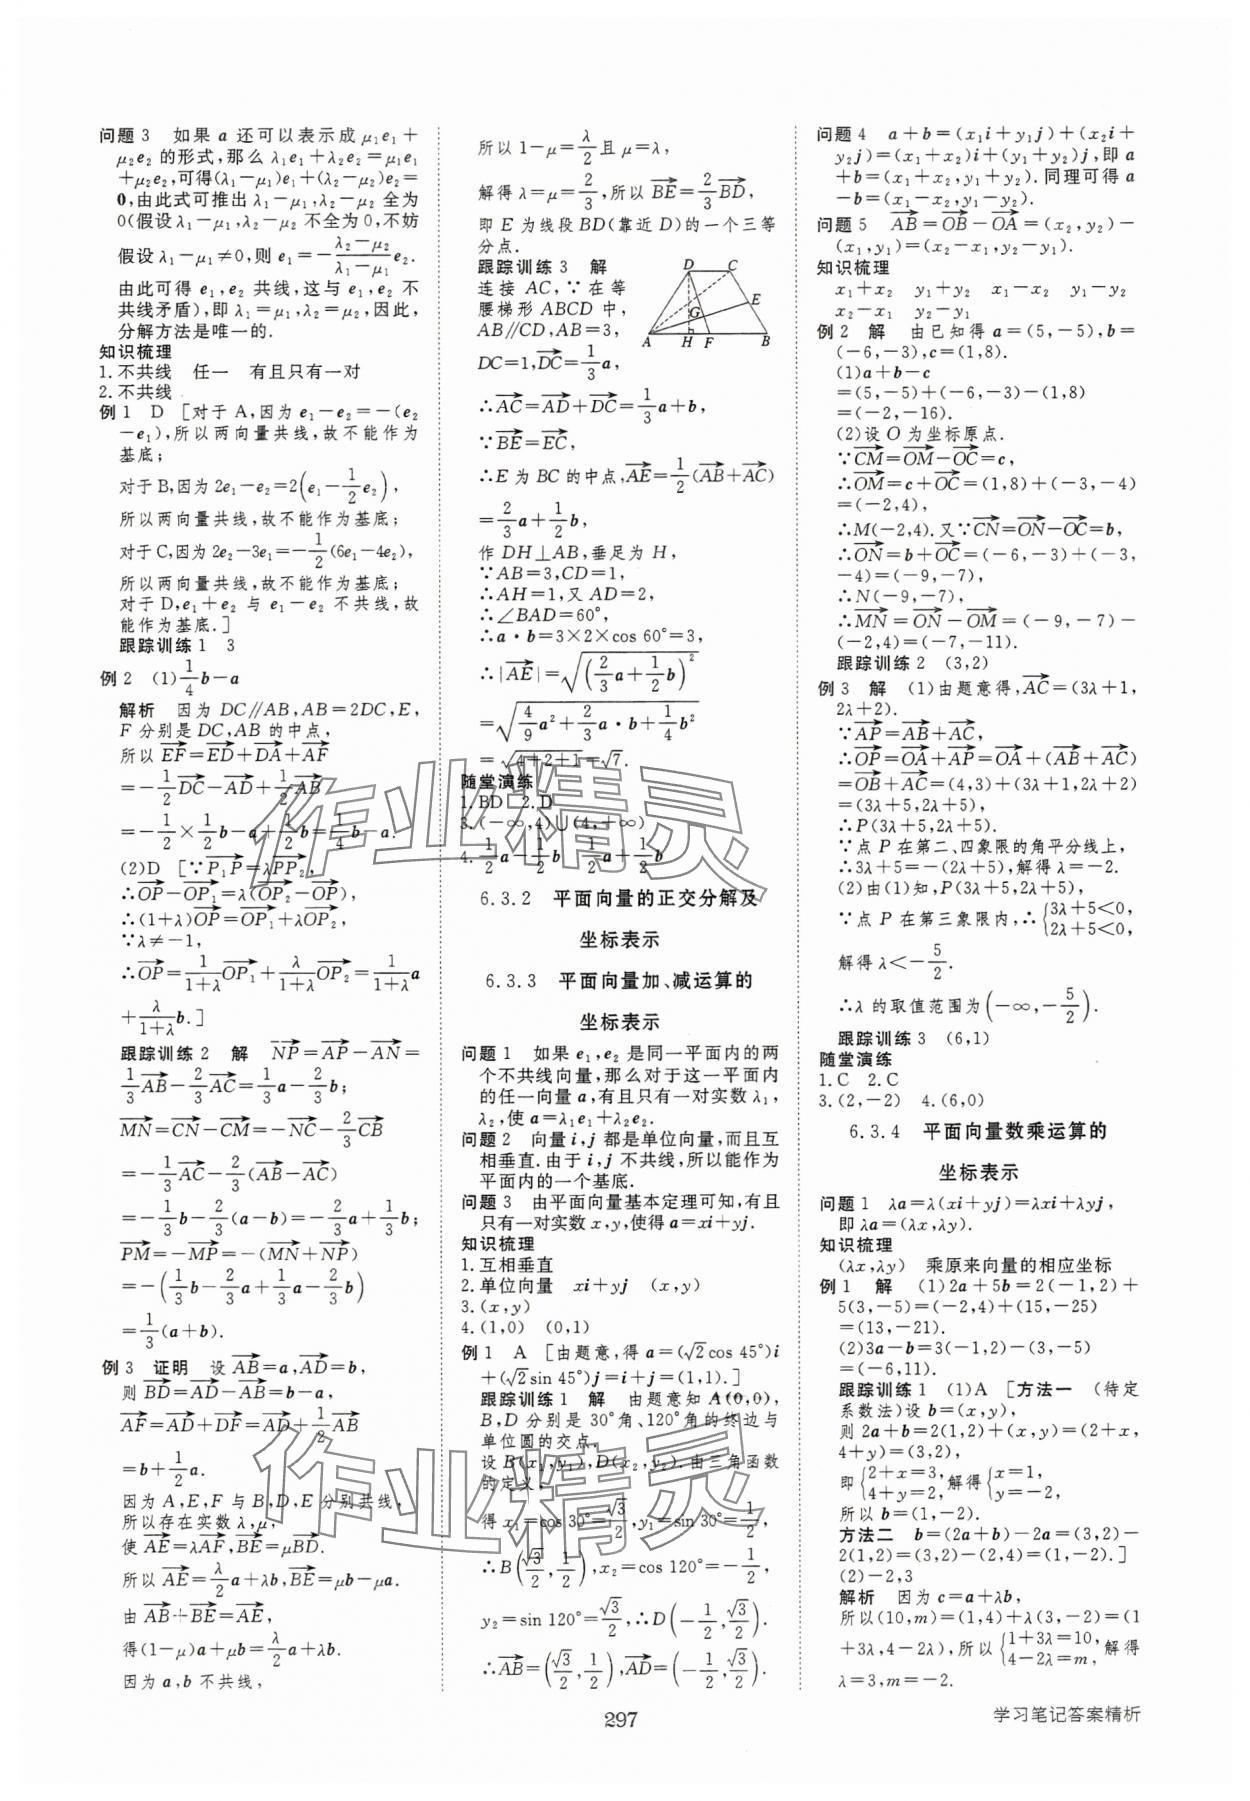 问题3 如果 a 还可以表示成 μ₁e₁+
μ₂e₂ 的形式,那么 λ₁e₁+λ₂e₂=μ₁e₁
+μ₂e₂,可得(λ₁-μ₁)e₁+(λ₂-μ₂)e₂=
0,由此式可推出 λ₁-μ₁,λ₂-μ₂ 全为
0(假设 λ₁-μ₁,λ₂-μ₂ 不全为 0,不妨
假设 λ₁-μ₁≠0,则 e₁=-(λ₂-μ₂)/(λ₁-μ₁)e₂.
由此可得 e₁,e₂ 共线,这与 e₁,e₂ 不
共线矛盾),即 λ₁=μ₁,λ₂=μ₂,因此,
分解方法是唯一的.
知识梳理
1.不共线 任一 有且只有一对
2.不共线
例1 D [对于 A,因为 e₁-e₂=-(e₂
-e₁),所以两向量共线,故不能作为
基底;
对于 B,因为 2e₁-e₂=2(e₁-1/2e₂),
所以两向量共线,故不能作为基底;
对于 C,因为 2e₂-3e₁=-1/2(6e₁-4e₂),
所以两向量共线,故不能作为基底;
对于 D,e₁+e₂ 与 e₁-e₂ 不共线,故
能作为基底.]
跟踪训练1 3
例2 (1)1/4b-a
解析 因为 DC∥AB,AB=2DC,E,
F 分别是 DC,AB 的中点,
所以 EF→=ED→+DA→+AF→
=-1/2DC→-AD→+1/2AB→
=-1/2×1/2b-a+1/2b=1/4b-a.
(2)D [∵P₁P→=λPP₂→,
∴OP→-OP₁→=λ(OP₂→-OP→),
∴(1+λ)OP→=OP₁→+λOP₂→,
∵λ≠-1,
∴OP→=1/(1+λ)OP₁→+λ/(1+λ)OP₂→=1/(1+λ)a
+λ/(1+λ)b.]
跟踪训练2 解 NP→=AP→-AN→=
1/3AB→-2/3AC→=1/3a-2/3b;
MN→=CN→-CM→=-NC→-2/3CB→
=-1/3AC→-2/3(AB→-AC→)
=-1/3b-2/3(a-b)=-2/3a+1/3b;
PM→=-MP→=-(MN→+NP→)
=-(1/3b-2/3a+1/3a-2/3b)
=1/3(a+b).
例3 证明 设 AB→=a,AD→=b,
则 BD→=AD→-AB→=b-a,
AF→=AD→+DF→=AD→+1/2AB→
=b+1/2a.
因为 A,E,F 与 B,D,E 分别共线,
所以存在实数 λ,μ,
使 AE→=λAF→,BE→=μBD→.
所以 AE→=λ/2a+λb,BE→=μb-μa.
由 AB→+BE→=AE→,
得(1-μ)a+μb=λ/2a+λb.
因为 a,b 不共线,
所以 1-μ=λ/2 且 μ=λ,
解得 λ=μ=2/3,所以 BE→=2/3BD→,
即 E 为线段 BD(靠近 D)的一个三等
分点.
跟踪训练3 解
连接 AC,∵在等
腰梯形 ABCD 中,
AB∥CD,AB=3,
DC=1,DC→=1/3a,
D C E G A H F B
∴AC→=AD→+DC→=1/3a+b,
∵BE→=EC→,
∴E 为 BC 的中点,AE→=1/2(AB→+AC→)
=2/3a+1/2b,
作 DH⊥AB,垂足为 H,
∵AB=3,CD=1,
∴AH=1,又 AD=2,
∴∠BAD=60°,
∴a·b=3×2×cos 60°=3,
∴|AE→|=√((2/3a+1/2b)²)
=√(4/9a²+2/3a·b+1/4b²)
=√(4+2+1)=√7.
随堂演练
1.BD 2.D
3.(-∞,4)∪(4,+∞)
4.1/2a-1/2b 1/2a+1/2b
6.3.2 平面向量的正交分解及
坐标表示
6.3.3 平面向量加、减运算的
坐标表示
问题1 如果 e₁,e₂ 是同一平面内的两
个不共线向量,那么对于这一平面内
的任一向量 a,有且只有一对实数 λ₁,
λ₂,使 a=λ₁e₁+λ₂e₂.
问题2 向量 i,j 都是单位向量,而且互
相垂直.由于 i,j 不共线,所以能作为
平面内的一个基底.
问题3 由平面向量基本定理可知,有且
只有一对实数 x,y,使得 a=xi+yj.
知识梳理
1.互相垂直
2.单位向量 xi+yj (x,y)
3.(x,y)
4.(1,0) (0,1)
例1 A [由题意,得 a=(√2cos 45°)i
+(√2sin 45°)j=i+j=(1,1).]
跟踪训练1 解 由题意知 A(0,0),
B,D 分别是 30°角、120°角的终边与
单位圆的交点.
设 B(x₁,y₁),D(x₂,y₂).由三角函数
的定义,
得 x₁=cos 30°=√3/2,y₁=sin 30°=1/2,
∴B(√3/2,1/2),x₂=cos 120°=-1/2,
y₂=sin 120°=√3/2,∴D(-1/2,√3/2).
∴AB→=(√3/2,1/2),AD→=(-1/2,√3/2).
问题4 a+b=(x₁i+y₁j)+(x₂i+
y₂j)=(x₁+x₂)i+(y₁+y₂)j,即 a
+b=(x₁+x₂,y₁+y₂).同理可得 a
-b=(x₁-x₂,y₁-y₂).
问题5 AB→=OB→-OA→=(x₂,y₂)-
(x₁,y₁)=(x₂-x₁,y₂-y₁).
知识梳理
x₁+x₂ y₁+y₂ x₁-x₂ y₁-y₂
x₂-x₁ y₂-y₁
例2 解 由已知得 a=(5,-5),b=
(-6,-3),c=(1,8).
(1)a+b-c
=(5,-5)+(-6,-3)-(1,8)
=(-2,-16).
(2)设 O 为坐标原点.
∵CM→=OM→-OC→=c,
∴OM→=c+OC→=(1,8)+(-3,-4)
=(-2,4),
∴M(-2,4).又∵CN→=ON→-OC→=b,
∴ON→=b+OC→=(-6,-3)+(-3,
-4)=(-9,-7),
∴N(-9,-7),
∴MN→=ON→-OM→=(-9,-7)-
(-2,4)=(-7,-11).
跟踪训练2 (3,2)
例3 解 (1)由题意得,AC→=(3λ+1,
2λ+2).
∵AP→=AB→+AC→,
∴OP→=OA→+AP→=OA→+(AB→+AC→)
=OB→+AC→=(4,3)+(3λ+1,2λ+2)
=(3λ+5,2λ+5),
∴P(3λ+5,2λ+5).
∵点 P 在第二、四象限的角平分线上,
∴3λ+5=-(2λ+5),解得 λ=-2.
(2)由(1)知,P(3λ+5,2λ+5),
∵点 P 在第三象限内,∴{3λ+5<0,
2λ+5<0,
解得 λ<-5/2.
∴λ 的取值范围为(-∞,-5/2).
跟踪训练3 (6,1)
随堂演练
1.C 2.C
3.(2,-2) 4.(6,0)
6.3.4 平面向量数乘运算的
坐标表示
问题1 λa=λ(xi+yj)=λxi+λyj,
即 λa=(λx,λy).
知识梳理
(λx,λy) 乘原来向量的相应坐标
例1 解 (1)2a+5b=2(-1,2)+
5(3,-5)=(-2,4)+(15,-25)
=(13,-21).
(2)3a-b=3(-1,2)-(3,-5)
=(-6,11).
跟踪训练1 (1)A [方法一 (待定
系数法)设 b=(x,y),
则 2a+b=2(1,2)+(x,y)=(2+x,
4+y)=(3,2),
即{2+x=3,
4+y=2,解得{x=1,
y=-2,
所以 b=(1,-2).
方法二 b=(2a+b)-2a=(3,2)-
2(1,2)=(3,2)-(2,4)=(1,-2).]
(2)-2,3
解析 因为 c=a+λb,
所以(10,m)=(1,4)+λ(3,-2)=(1
+3λ,4-2λ),所以{1+3λ=10,
4-2λ=m,解得
λ=3,m=-2.
作业精灵
作业精灵
297
学习笔记答案精析